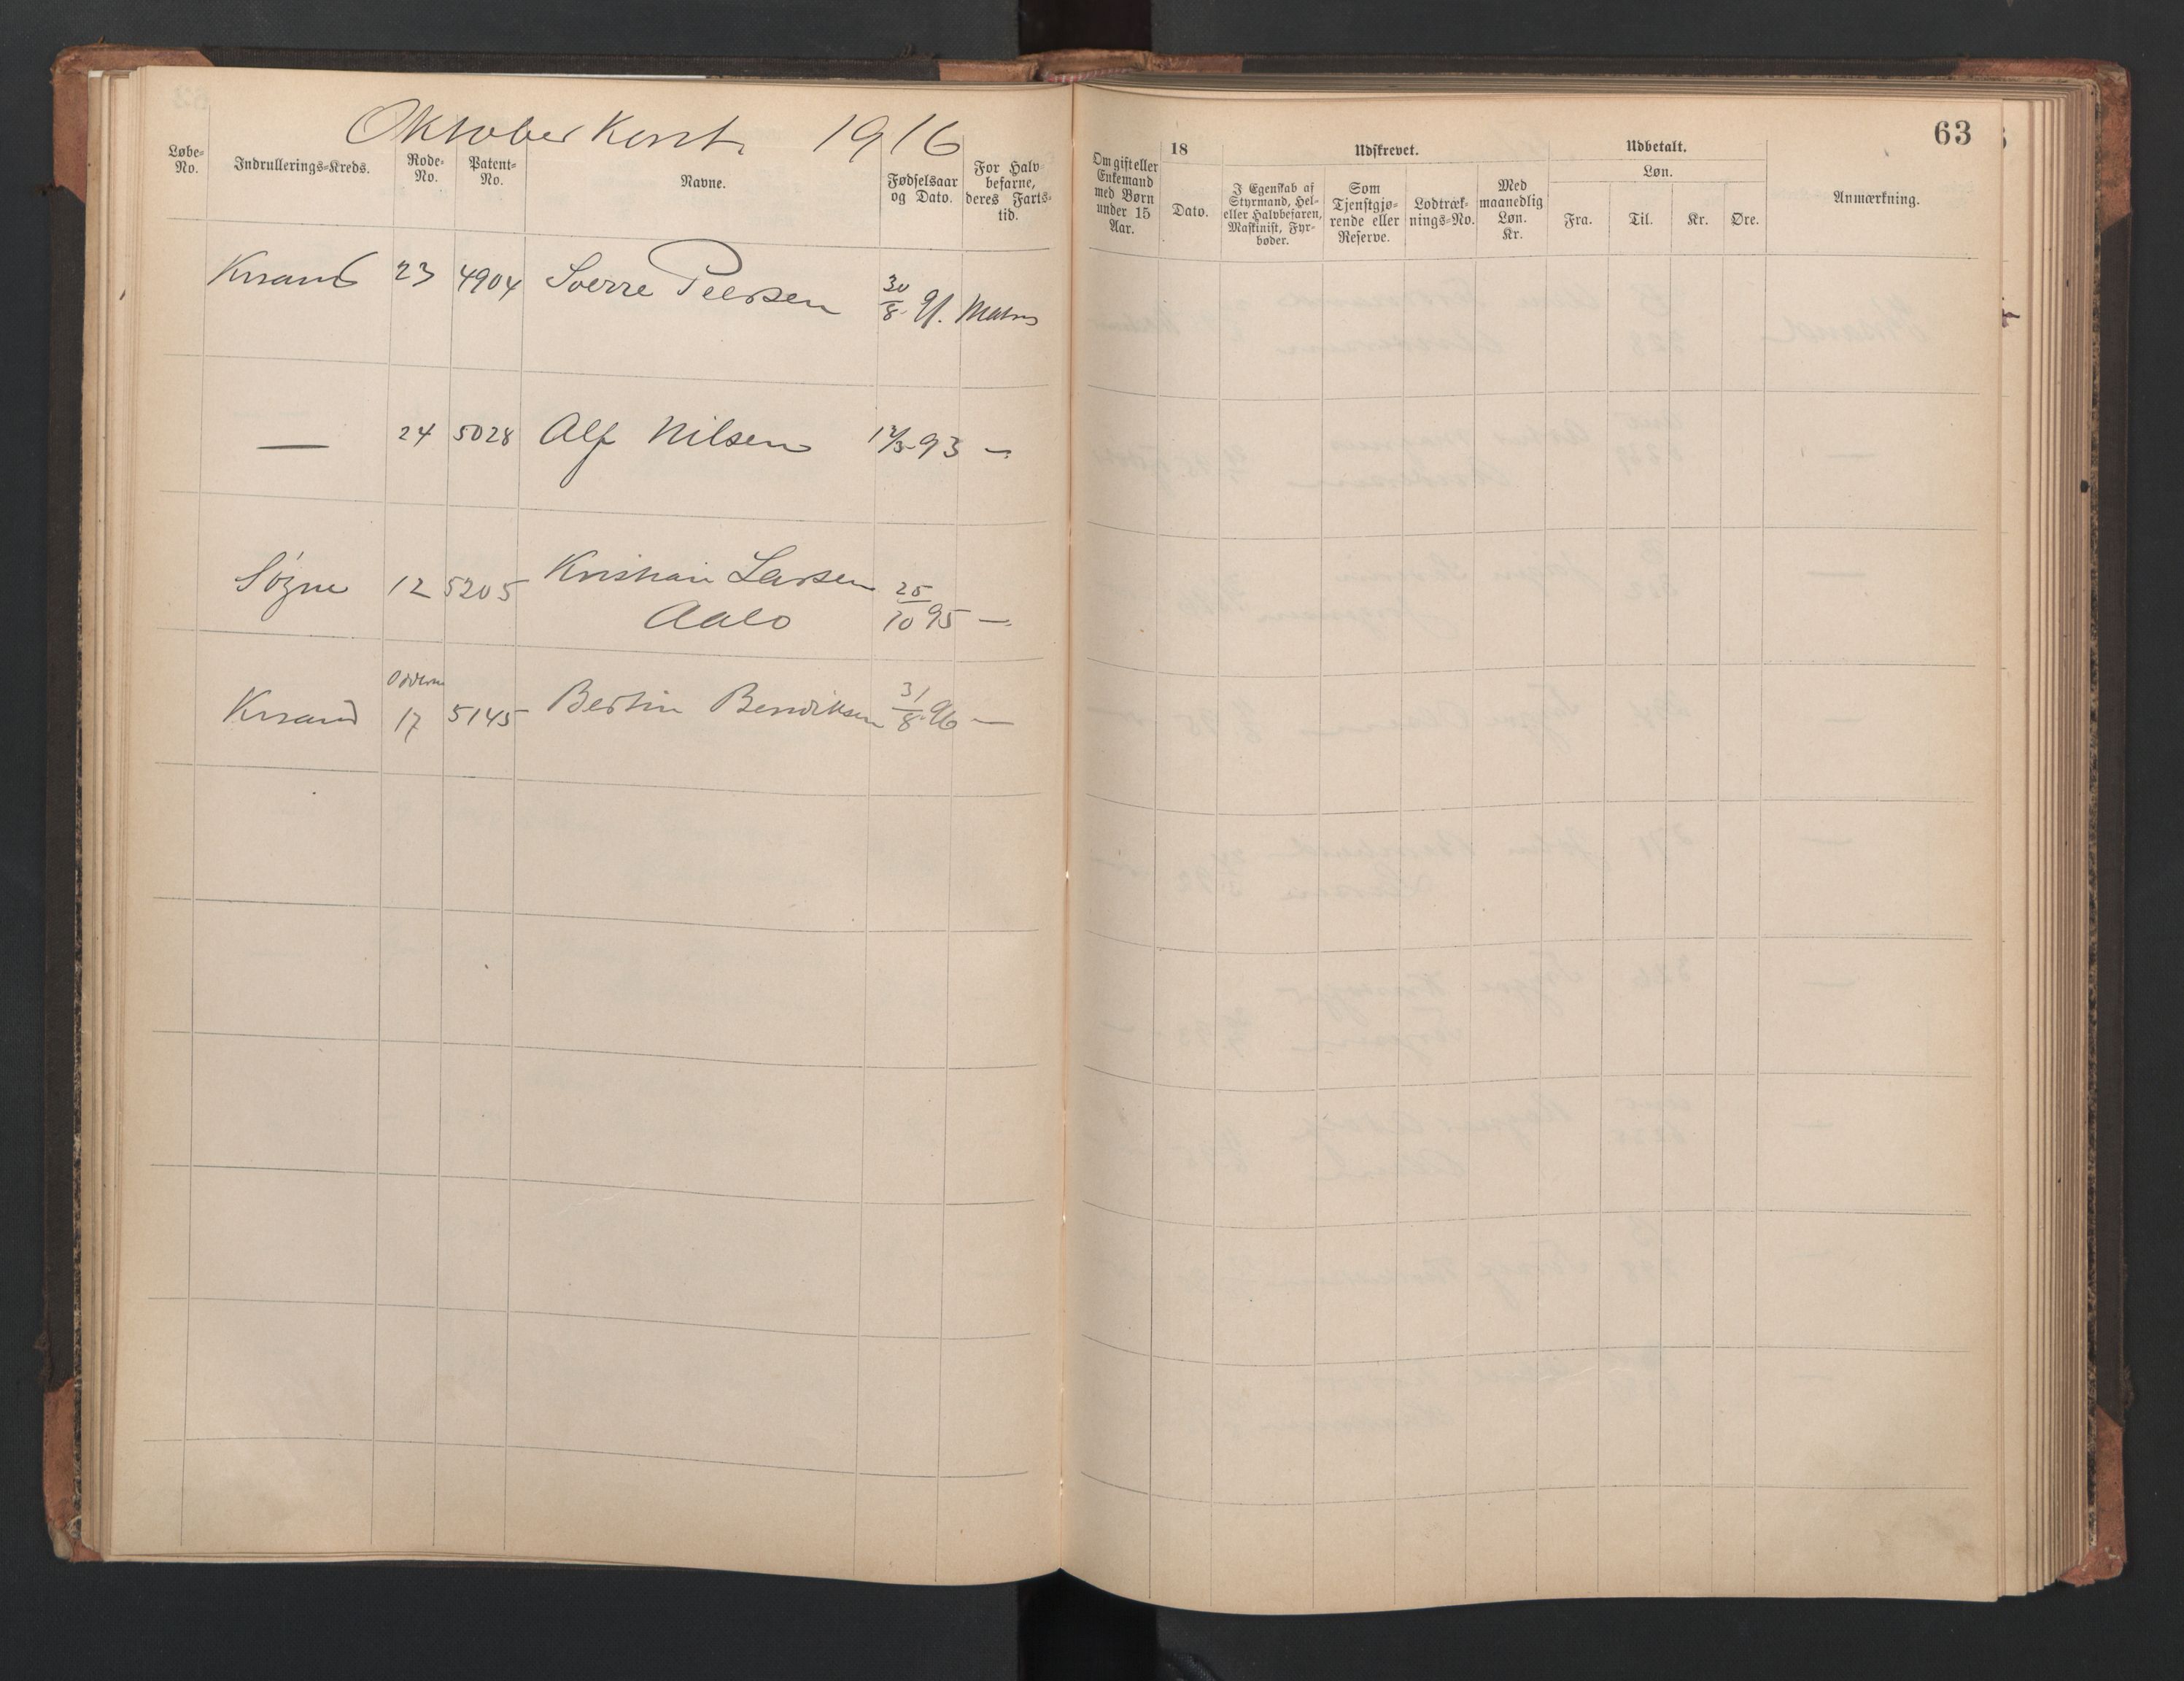 Oktober Kont. 1916
63
Løbe-No. Indrullerings-Kreds. Rode-No. Patent-No. Navne. Fødselsaar og Dato. For Halvbefarne, deres Fartstid.
Om gift eller Enkemand med Børn under 15 Aar. 18 Dato. Udskrevet. I Egenskab af Styrmand, Hel- eller Halvbefaren, Maskinist, Fyrbøder. Som Tjenstgjørende eller Reserve. Lodtræknings-No. Med maanedlig Løn. Kr. Udbetalt. Løn. Fra. Til. Kr. Øre. Anmærkning.
Krsand 23 4904 Sverre Peersen 30/8 91. Matros
— 24 5028 Alf Nilsen 12/3 93 —
Søgne 12 5205 Kristian Larsen 25/10 95 —
Aalo
Oddern
Krsand 17 5145 Bertin Bendiksen 31/8 96 —